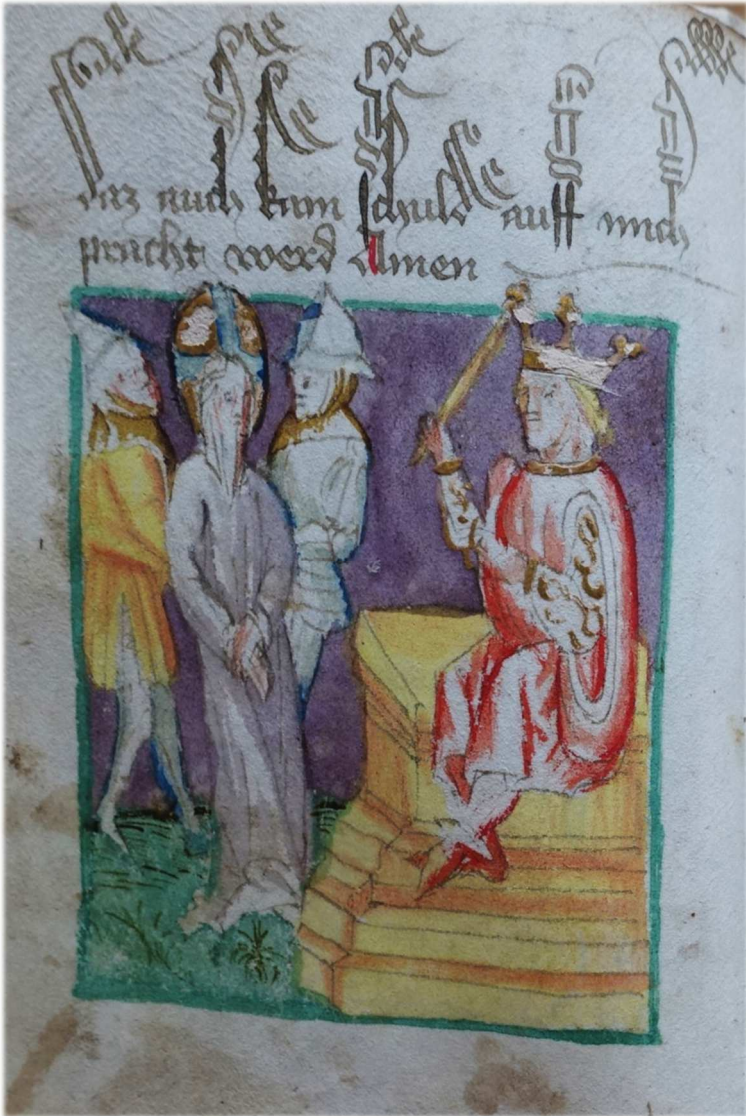 daz auch kain schuld auff mich
pracht werd Amen